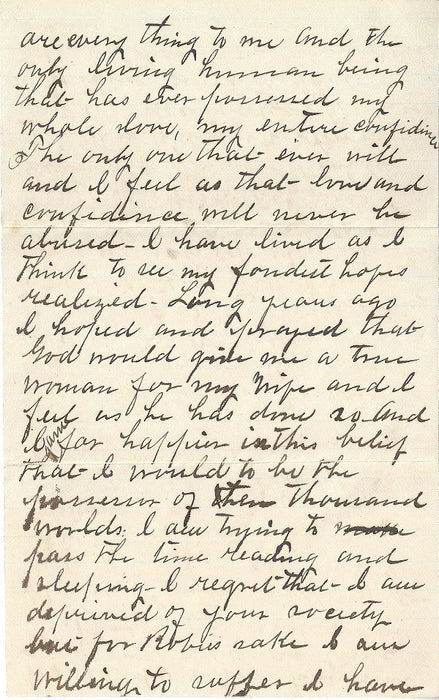 are every thing to me and the
only living human being
that has ever possessed my
whole love, my entire confidince
The only one that ever will
and I feel as that love and
confidince will never be
abused - I have lived as I
think to see my fondest hopes
realized - Long years ago
I hoped and prayed that
God would give me a true
woman for my Wife and I
feel as he has done so and
I am far happier in this belief
that I would to be the
possessor of ten thousand
worlds. I am trying to make
pass the time reading and
sleeping - I regret that I am
deprived of your society
but for Robies sake I am
willing to suffer I have